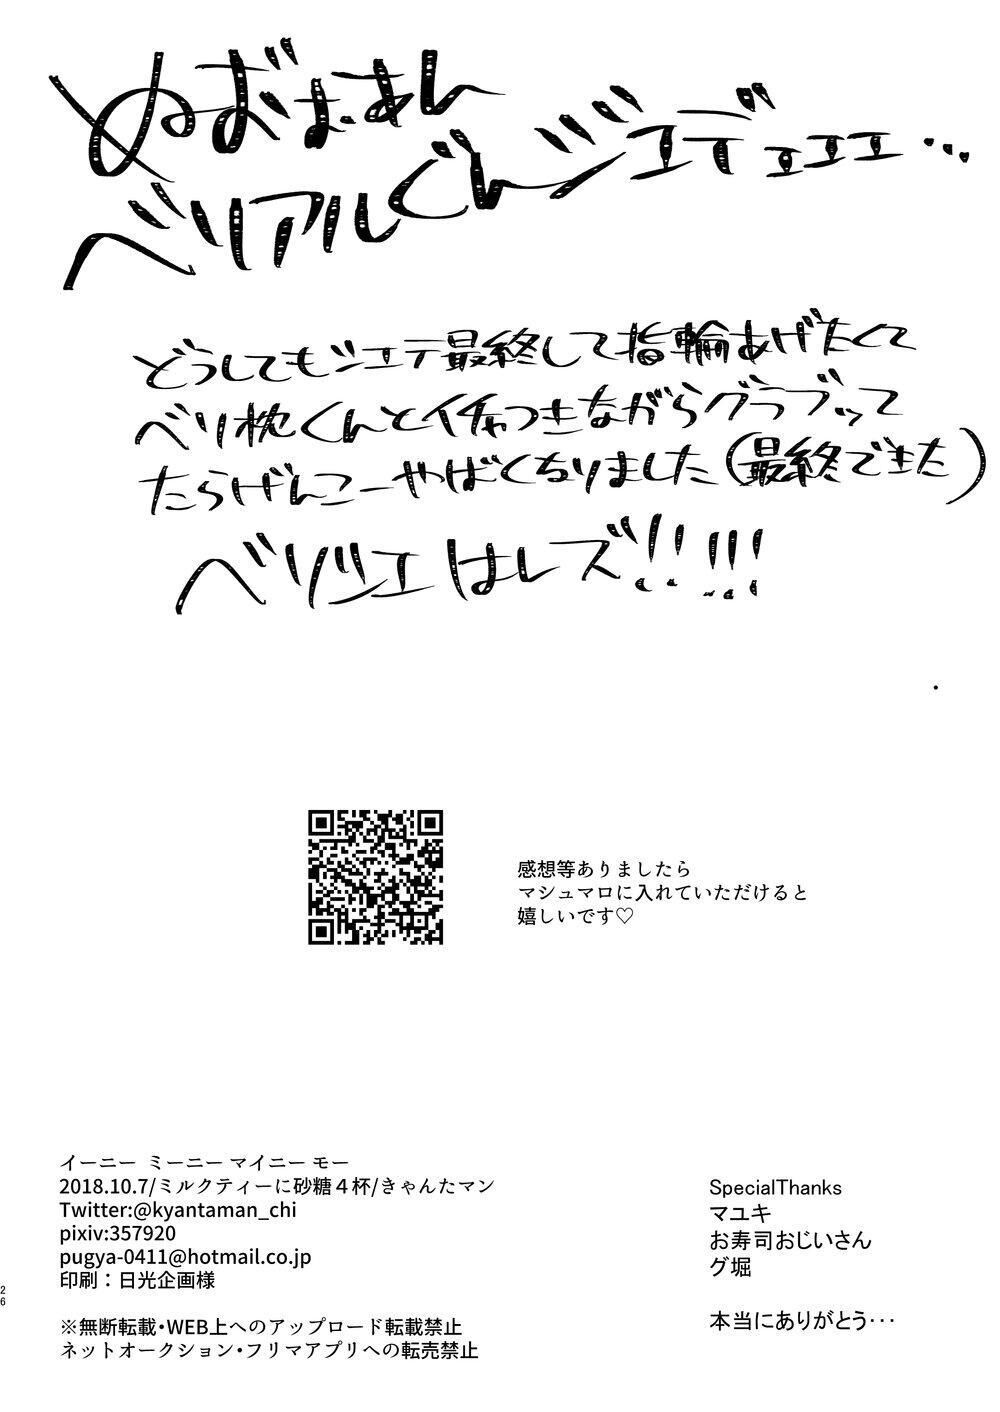 ぬ゛お゛まぁん
ベリアルぐんジエデェエエ…
どうしてもジエテ最終して指輪あげたくて
ベリ枕くんとイチャつきながらグラブッて
たらげんこーやばくなりました(最終できた)
ベリジエはレズ!!!!!
感想等ありましたら
マシュマロに入れていただけると
嬉しいです♡
イーニー ミーニー マイニー モー
2018.10.7/ミルクティーに砂糖４杯/きゃんたマン
Twitter:@kyantaman_chi
pixiv:357920
pugya-0411@hotmail.co.jp
印刷：日光企画様
※無断転載・WEB上へのアップロード転載禁止
ネットオークション・フリマアプリへの転売禁止
SpecialThanks
マユキ
お寿司おじいさん
グ堀
本当にありがとう･･･
26